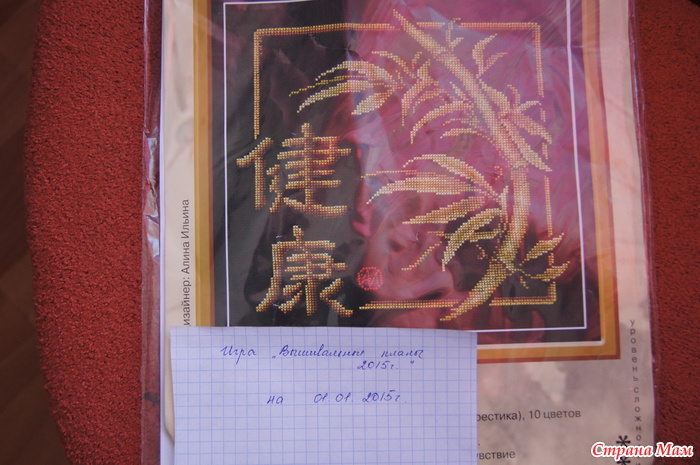 健
康
дизайнер: Алина Ильина
Игра „Вышивальные планы
2015г."
на 01.01.2015г.
крестика), 10 цветов
уровень сложно
Страна Мам